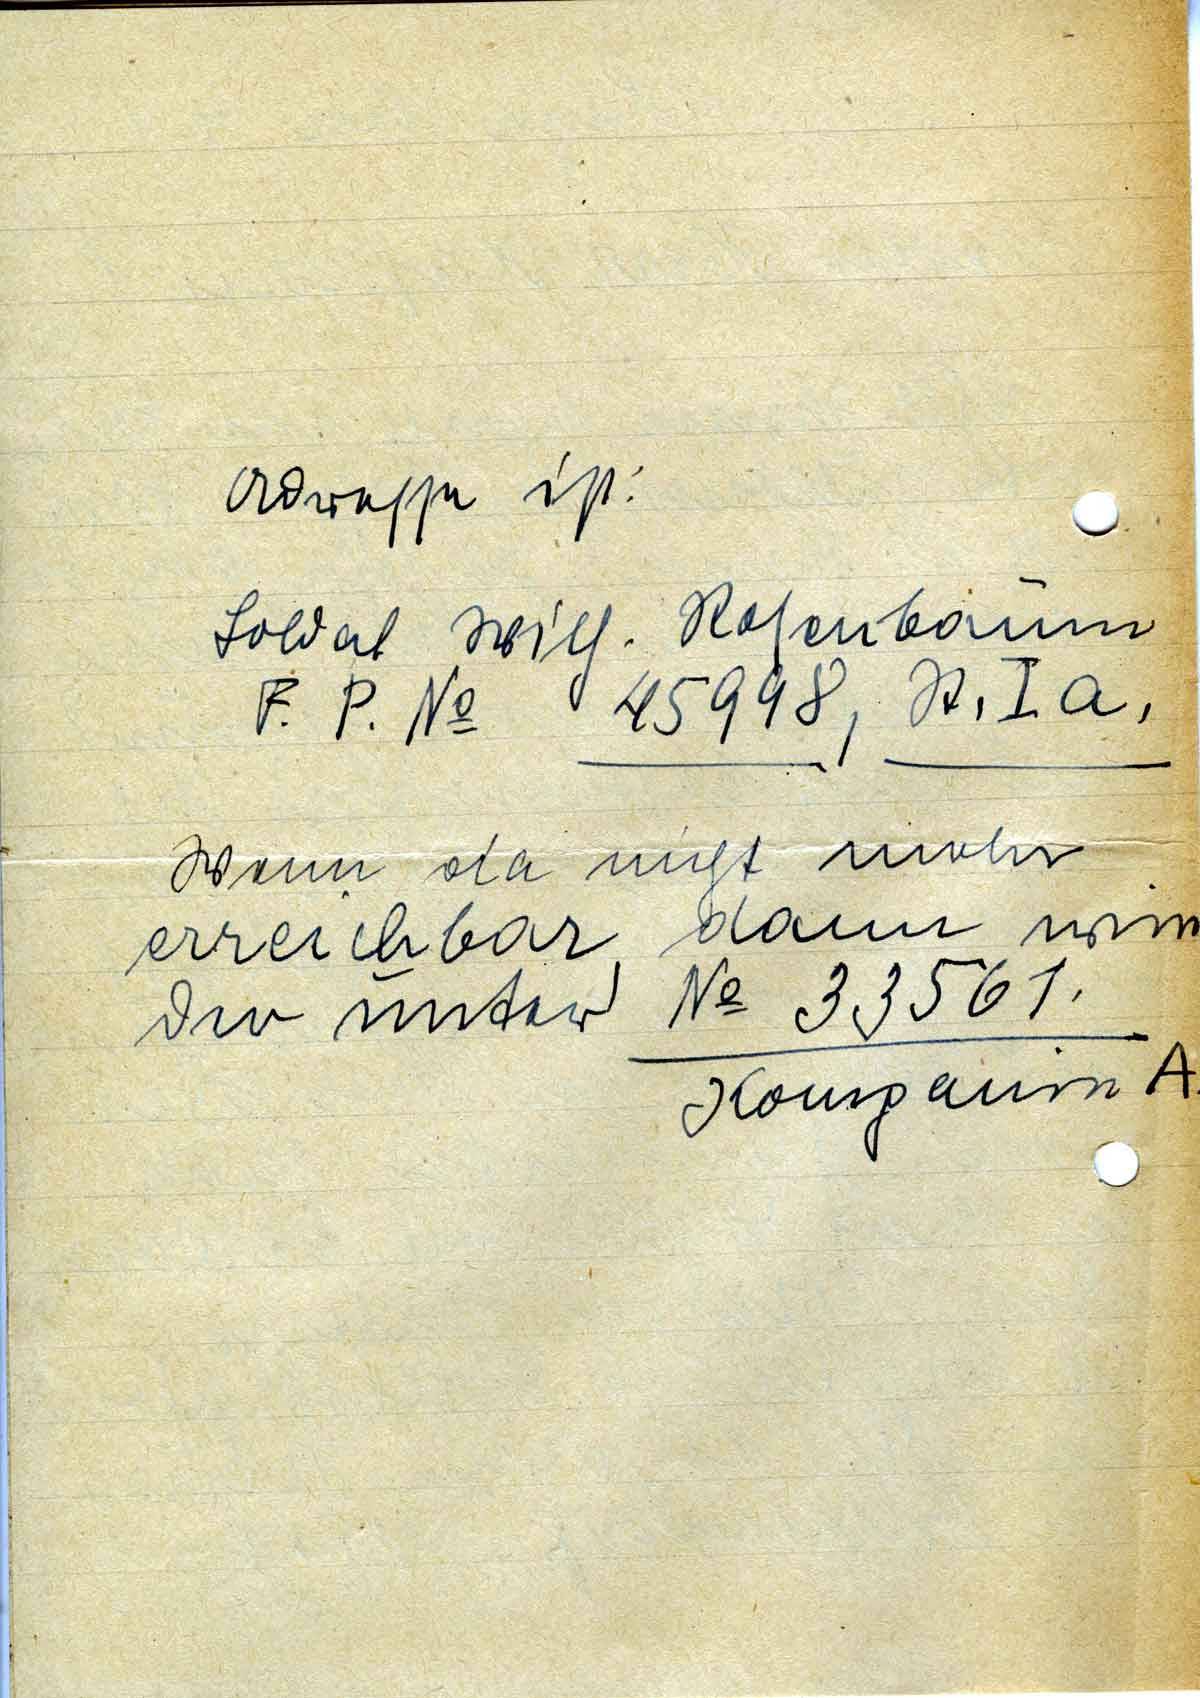 Adresse ist:
Soldat Wilh. Rosenbaum
F. P. № 45998, I a.
Wenn da nicht mehr
erreichbar, dann wie
der unter № 33561.
Kompanie A.